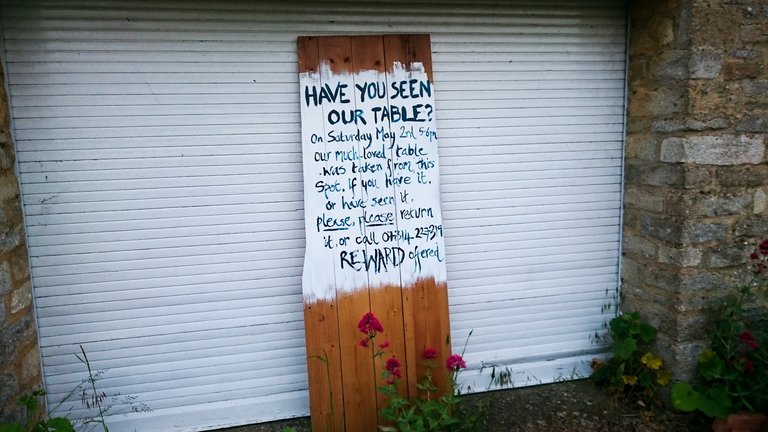 HAVE YOU SEEN
OUR TABLE?
On Saturday May 2nd 5-6pm
our much-loved table
was taken from this
Spot. If you have it,
or have seen it,
please, please return
it, or call
REWARD offered